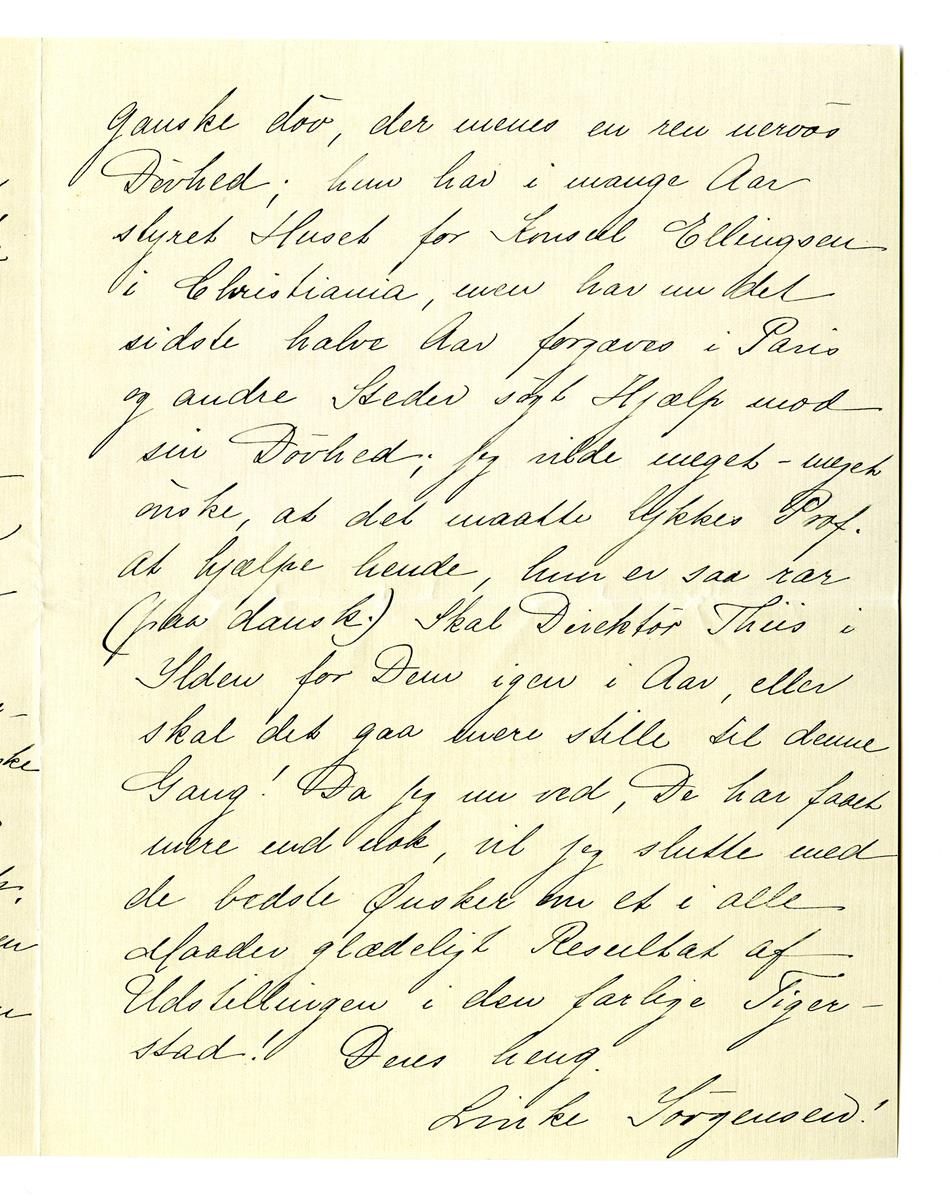 ganske döv, der menes en ren nervös
Dövhed; hun har i mange Aar
styret Huset for Konsul Ellingsen
i Christiania, men har nu det
sidste halve Aar forgæves i Paris
og andre Steder sögt Hjælp mod
sin Dövhed; jeg vilde meget - meget
önske, at det maatte lykkes Prof.
at hjælpe hende, hun er saa rar
(paa dansk.) Skal Direktör Thiis i
Ilden for Dem igen i Aar, eller
skal det gaa mere stille til denne
Gang! Da jeg nu ved, De har faaet
mere end nok, vil jeg slutte med
de bedste Ønsker om et i alle
Maader glædeligt Resultat af
Udstillingen i den farlige Tiger-
stad! Deres heng.
Linke Jörgensen!
ske
en